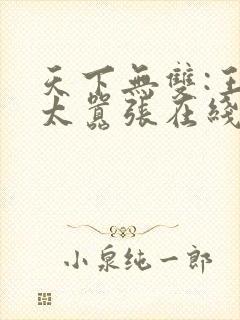 天下無雙:王
太囂張在綫
小泉纯一郎